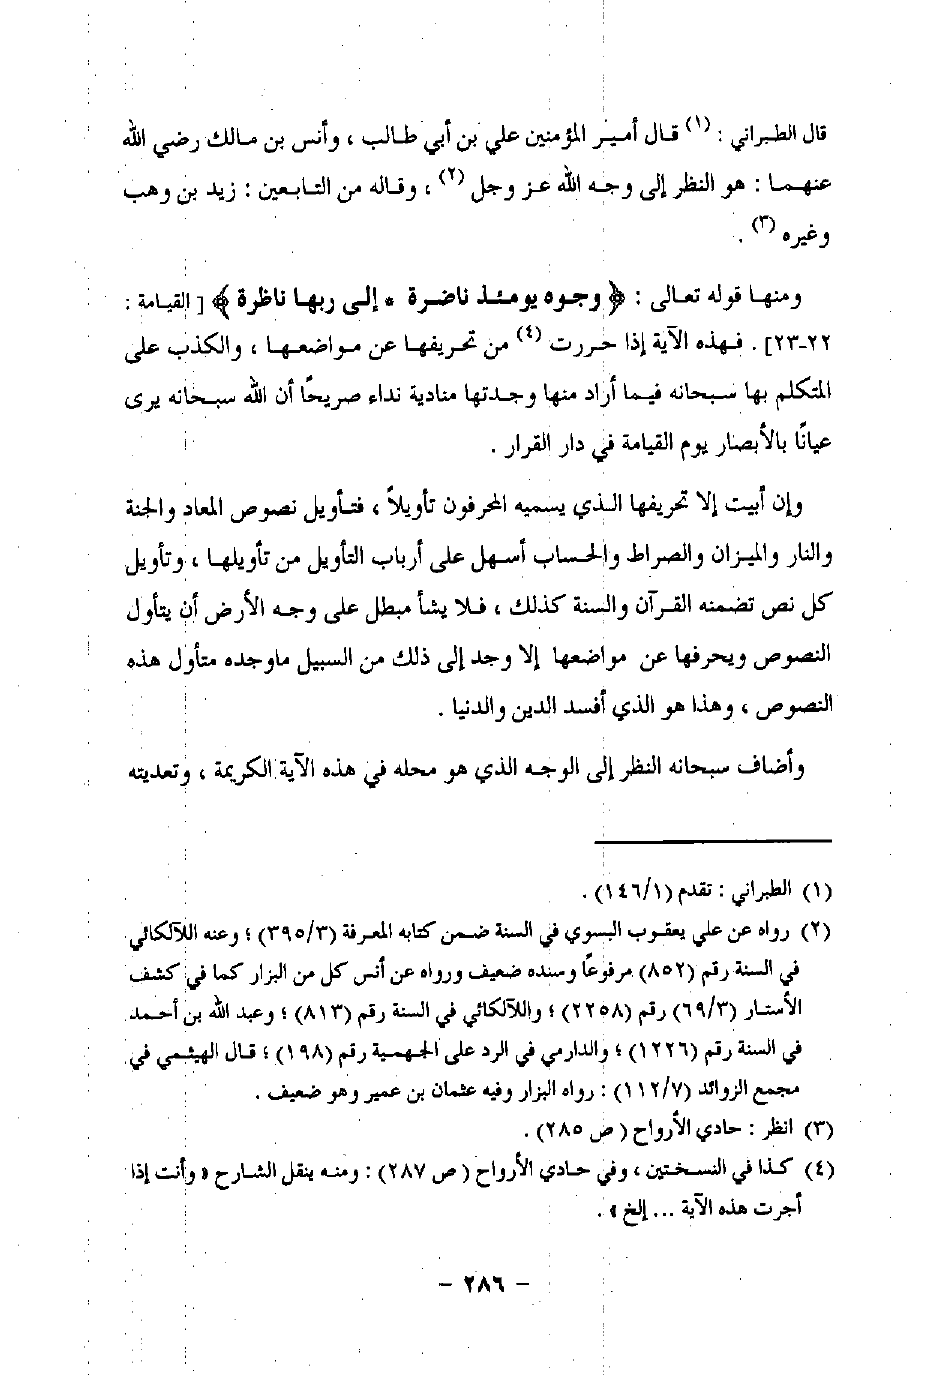 قال الطبراني : (١) قال أمير المؤمنين علي بن أبي طالب ، وأنس بن مالك رضي الله
عنهما : هو النظر إلى وجه الله عز وجل (٢) ، وقاله من التابعين : زيد بن وهب
وغيره (٣) .
ومنها قوله تعالى : ﴿ وجوه يومئذ ناضرة * إلى ربها ناظرة ﴾ [ القيامة :
٢٢-٢٣] . فهذه الآية إذا حررت (٤) من تحريفها عن مواضعها ، والكذب على
المتكلم بها سبحانه فيما أراد منها وجدتها منادية نداء صريحًا أن الله سبحانه يرى
عيانًا بالأبصار يوم القيامة في دار القرار .
وإن أبيت إلا تحريفها الذي يسميه المحرفون تأويلاً ، فتأويل نصوص المعاد والجنة
والنار والميزان والصراط والحساب أسهل على أرباب التأويل من تأويلها ، وتأويل
كل نص تضمنه القرآن والسنة كذلك ، فلا يشأ مبطل على وجه الأرض أن يتأول
النصوص ويحرفها عن مواضعها إلا وجد إلى ذلك من السبيل ماوجده متأول هذه
النصوص ، وهذا هو الذي أفسد الدين والدنيا .
وأضاف سبحانه النظر إلى الوجه الذي هو محله في هذه الآية الكريمة ، وتعديته
(١) الطبراني : تقدم (١٤٦/١) .
(٢) رواه عن علي يعقوب البسوي في السنة ضمن كتابه المعرفة (٣٩٥/٣) ؛ وعنه اللآلكائي
في السنة رقم (٨٥٢) مرفوعًا وسنده ضعيف ورواه عن أنس كل من البزار كما في كشف
الأستار (٦٩/٣) رقم (٢٢٥٨) ؛ واللآلكائي في السنة رقم (٨١٣) ؛ وعبد الله بن أحمد
في السنة رقم (١٢٢٦) ؛ والدارمي في الرد على الجهمية رقم (١٩٨) ؛ قال الهيثمي في
مجمع الزوائد (١١٢/٧) : رواه البزار وفيه عثمان بن عمير وهو ضعيف .
(٣) انظر : حادي الأرواح ( ص ٢٨٥) .
(٤) كذا في النسختين ، وفي حادي الأرواح ( ص ٢٨٧) : ومنه ينقل الشارح « وأنت إذا
أجرت هذه الآية ... إلخ » .
- ٢٨٦ -